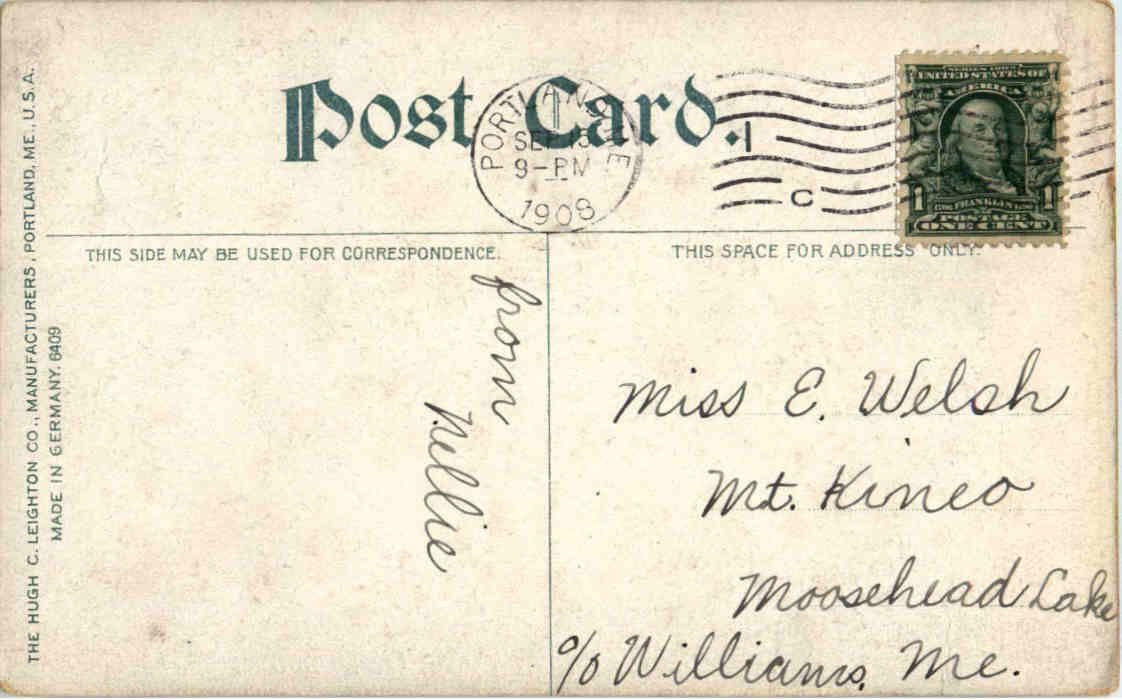 THE HUGH C. LEIGHTON CO., MANUFACTURERS, PORTLAND, ME., U.S.A.
MADE IN GERMANY. 6409
Post Card.
PORTLAND ME
SEP 13
9-PM
1908
1
C
SERIES 1902
UNITED STATES OF
AMERICA
1 FRANKLIN 1
POSTAGE
ONE CENT
THIS SIDE MAY BE USED FOR CORRESPONDENCE.
THIS SPACE FOR ADDRESS ONLY.
from
Nellie
Miss E. Welsh
Mt. Kineo
Moosehead Lake
c/o Williams. Me.